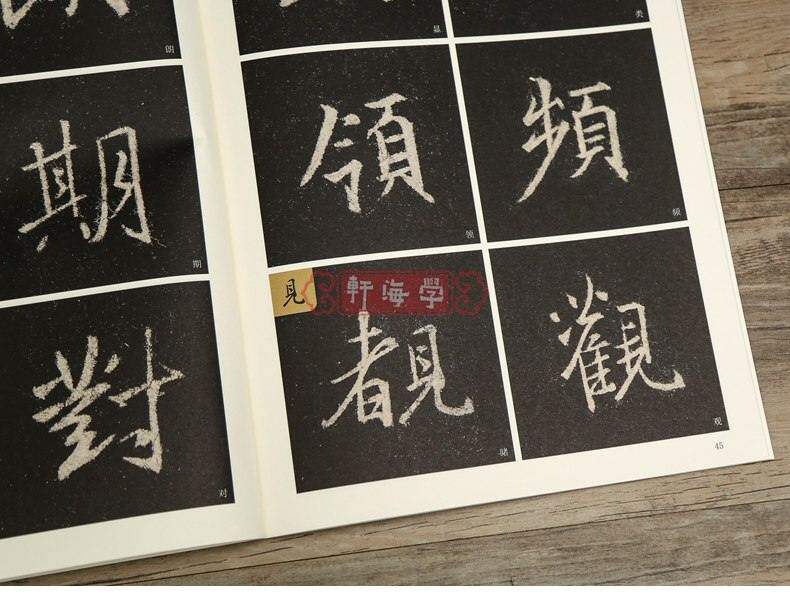 朗
显
类
期
領
頻
期
领
频
見
軒海学
對
覩
觀
对
睹
观
45